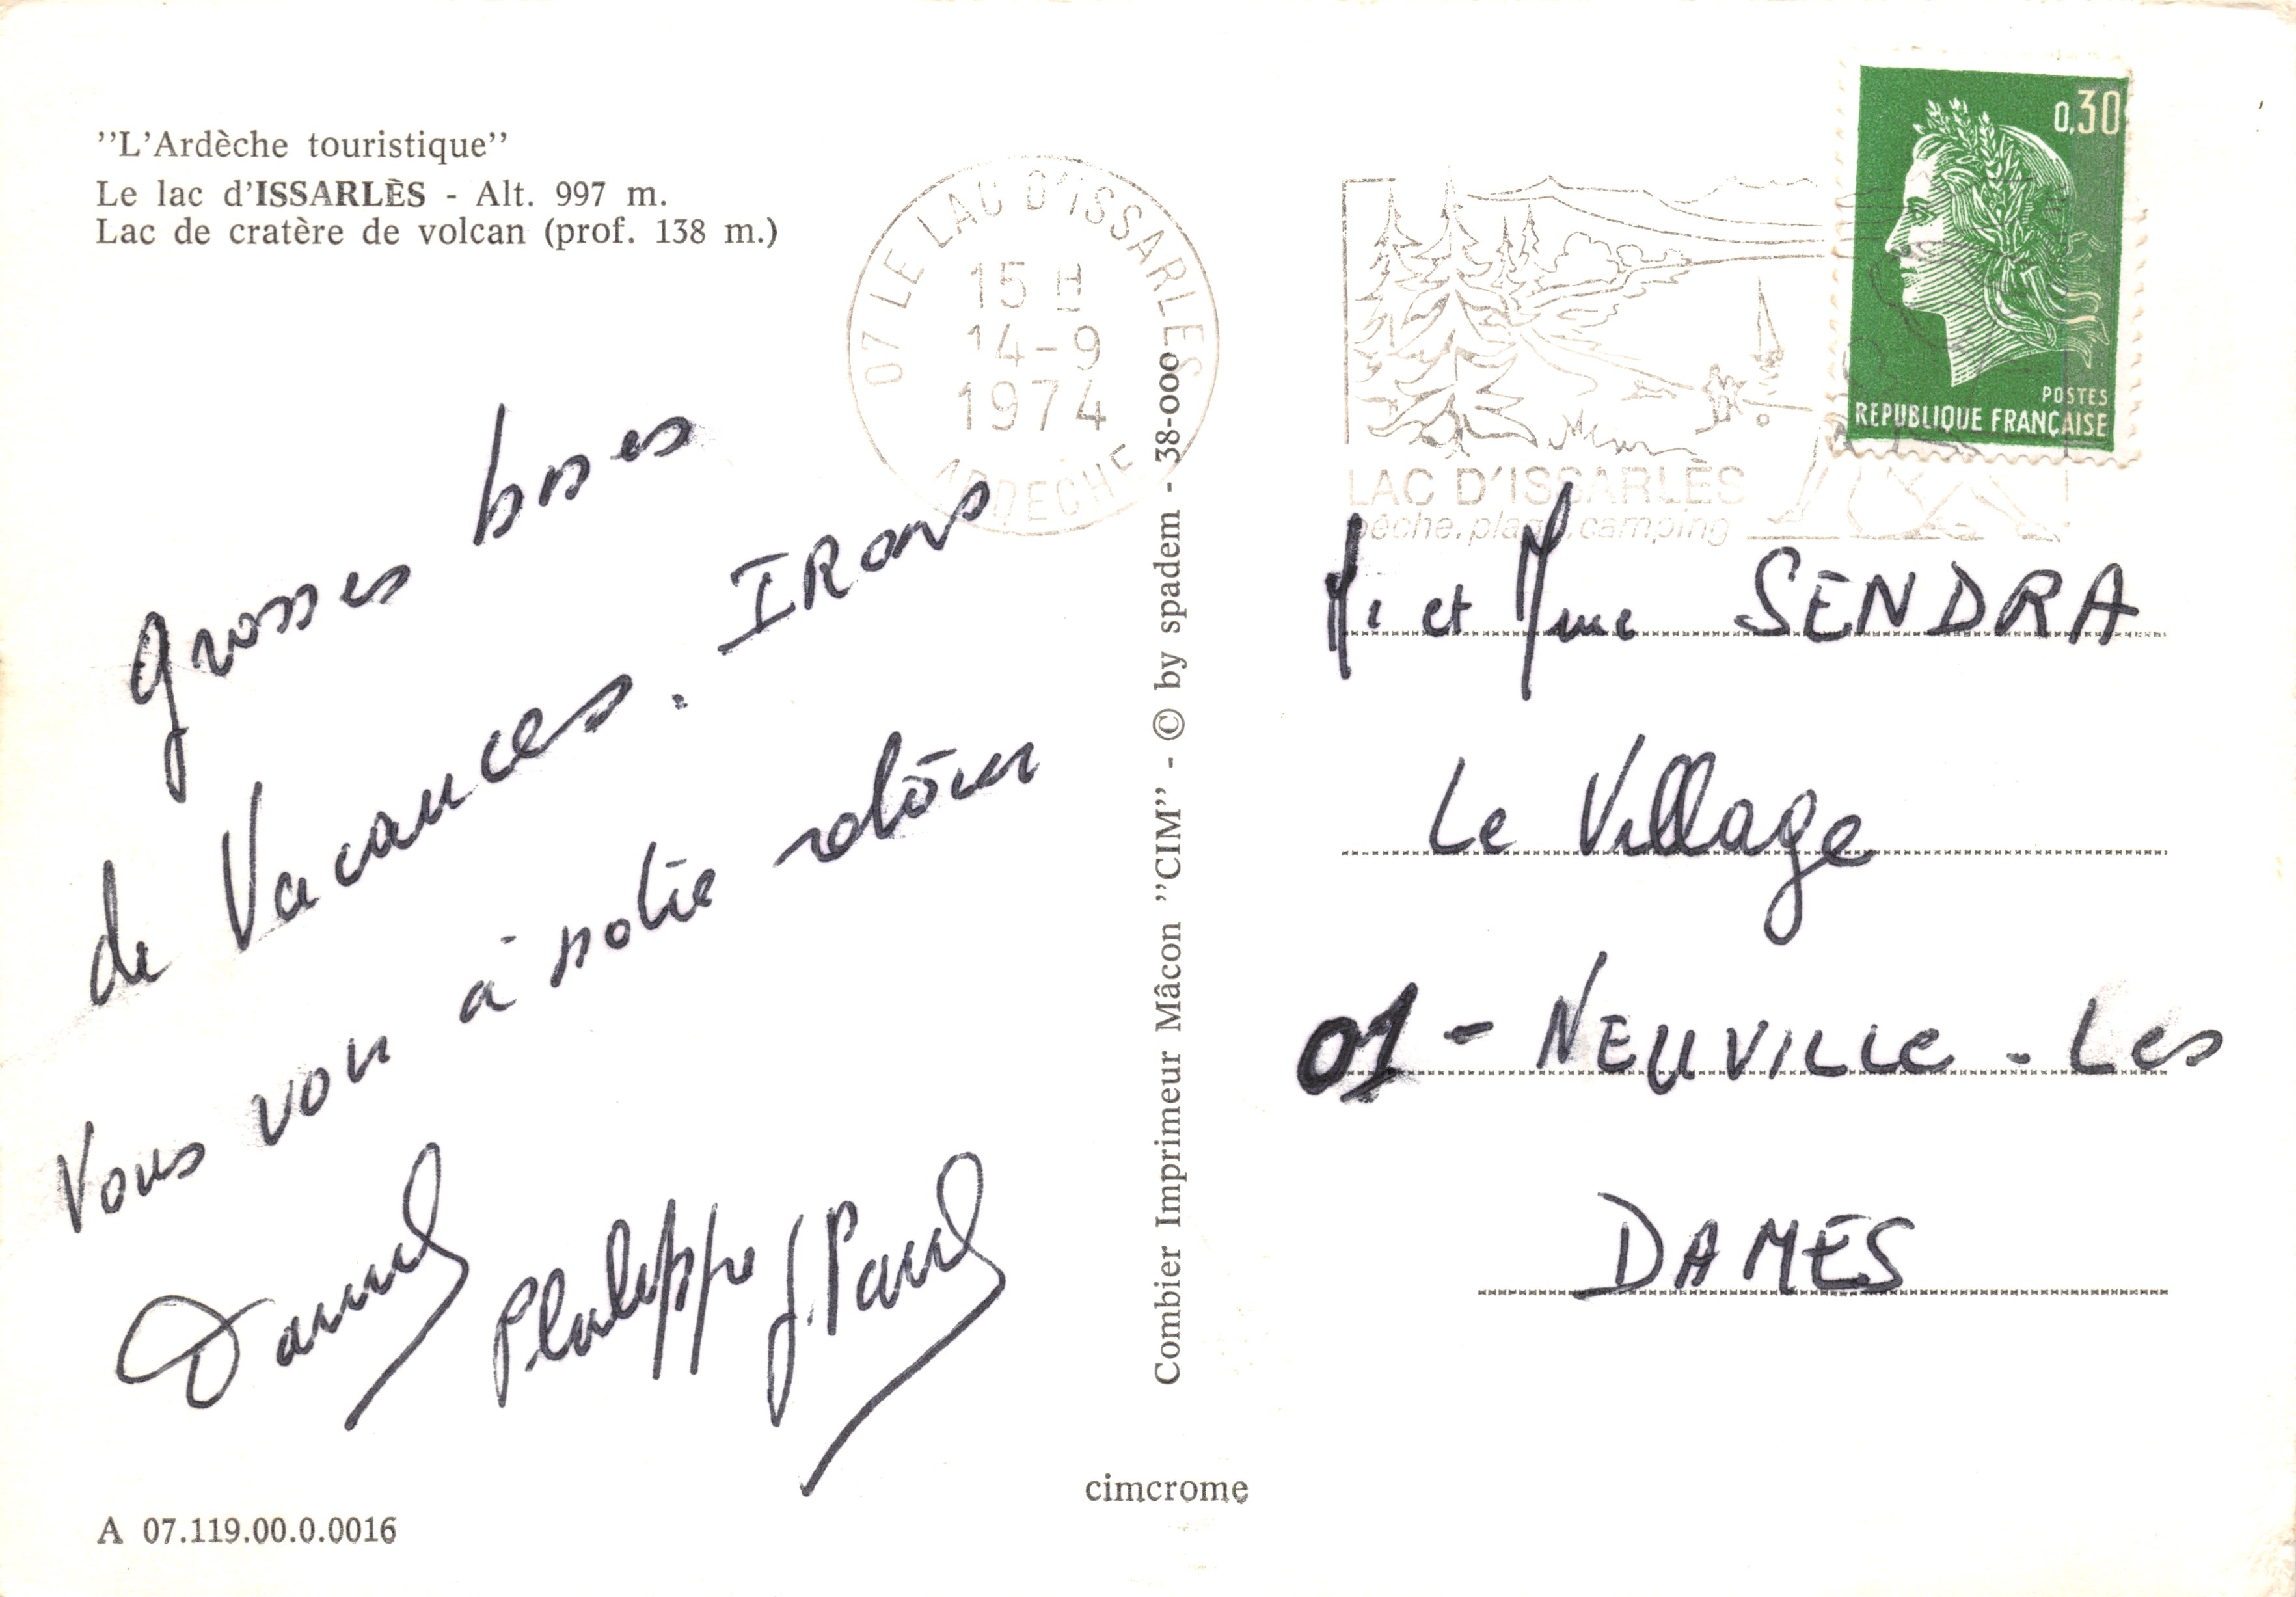 ''L'Ardèche touristique''
Le lac d'ISSARLÈS - Alt. 997 m.
Lac de cratère de volcan (prof. 138 m.)
07 LE LAC D'ISSARLES
15 H
14-9
1974
ARDECHE
LAC D'ISSARLÈS
pêche.plage.camping
0,30
POSTES
REPUBLIQUE FRANÇAISE
grosses bises
de Vacances. IRONS
Vous voir à notre retour
Daniel Philippe J. Paul
Combier Imprimeur Mâcon ''CIM'' - © by spadem - 38-000
M. et Mme SENDRA
Le Village
01 - NEUVILLE - Les
DAMES
cimcrome
A 07.119.00.0.0016